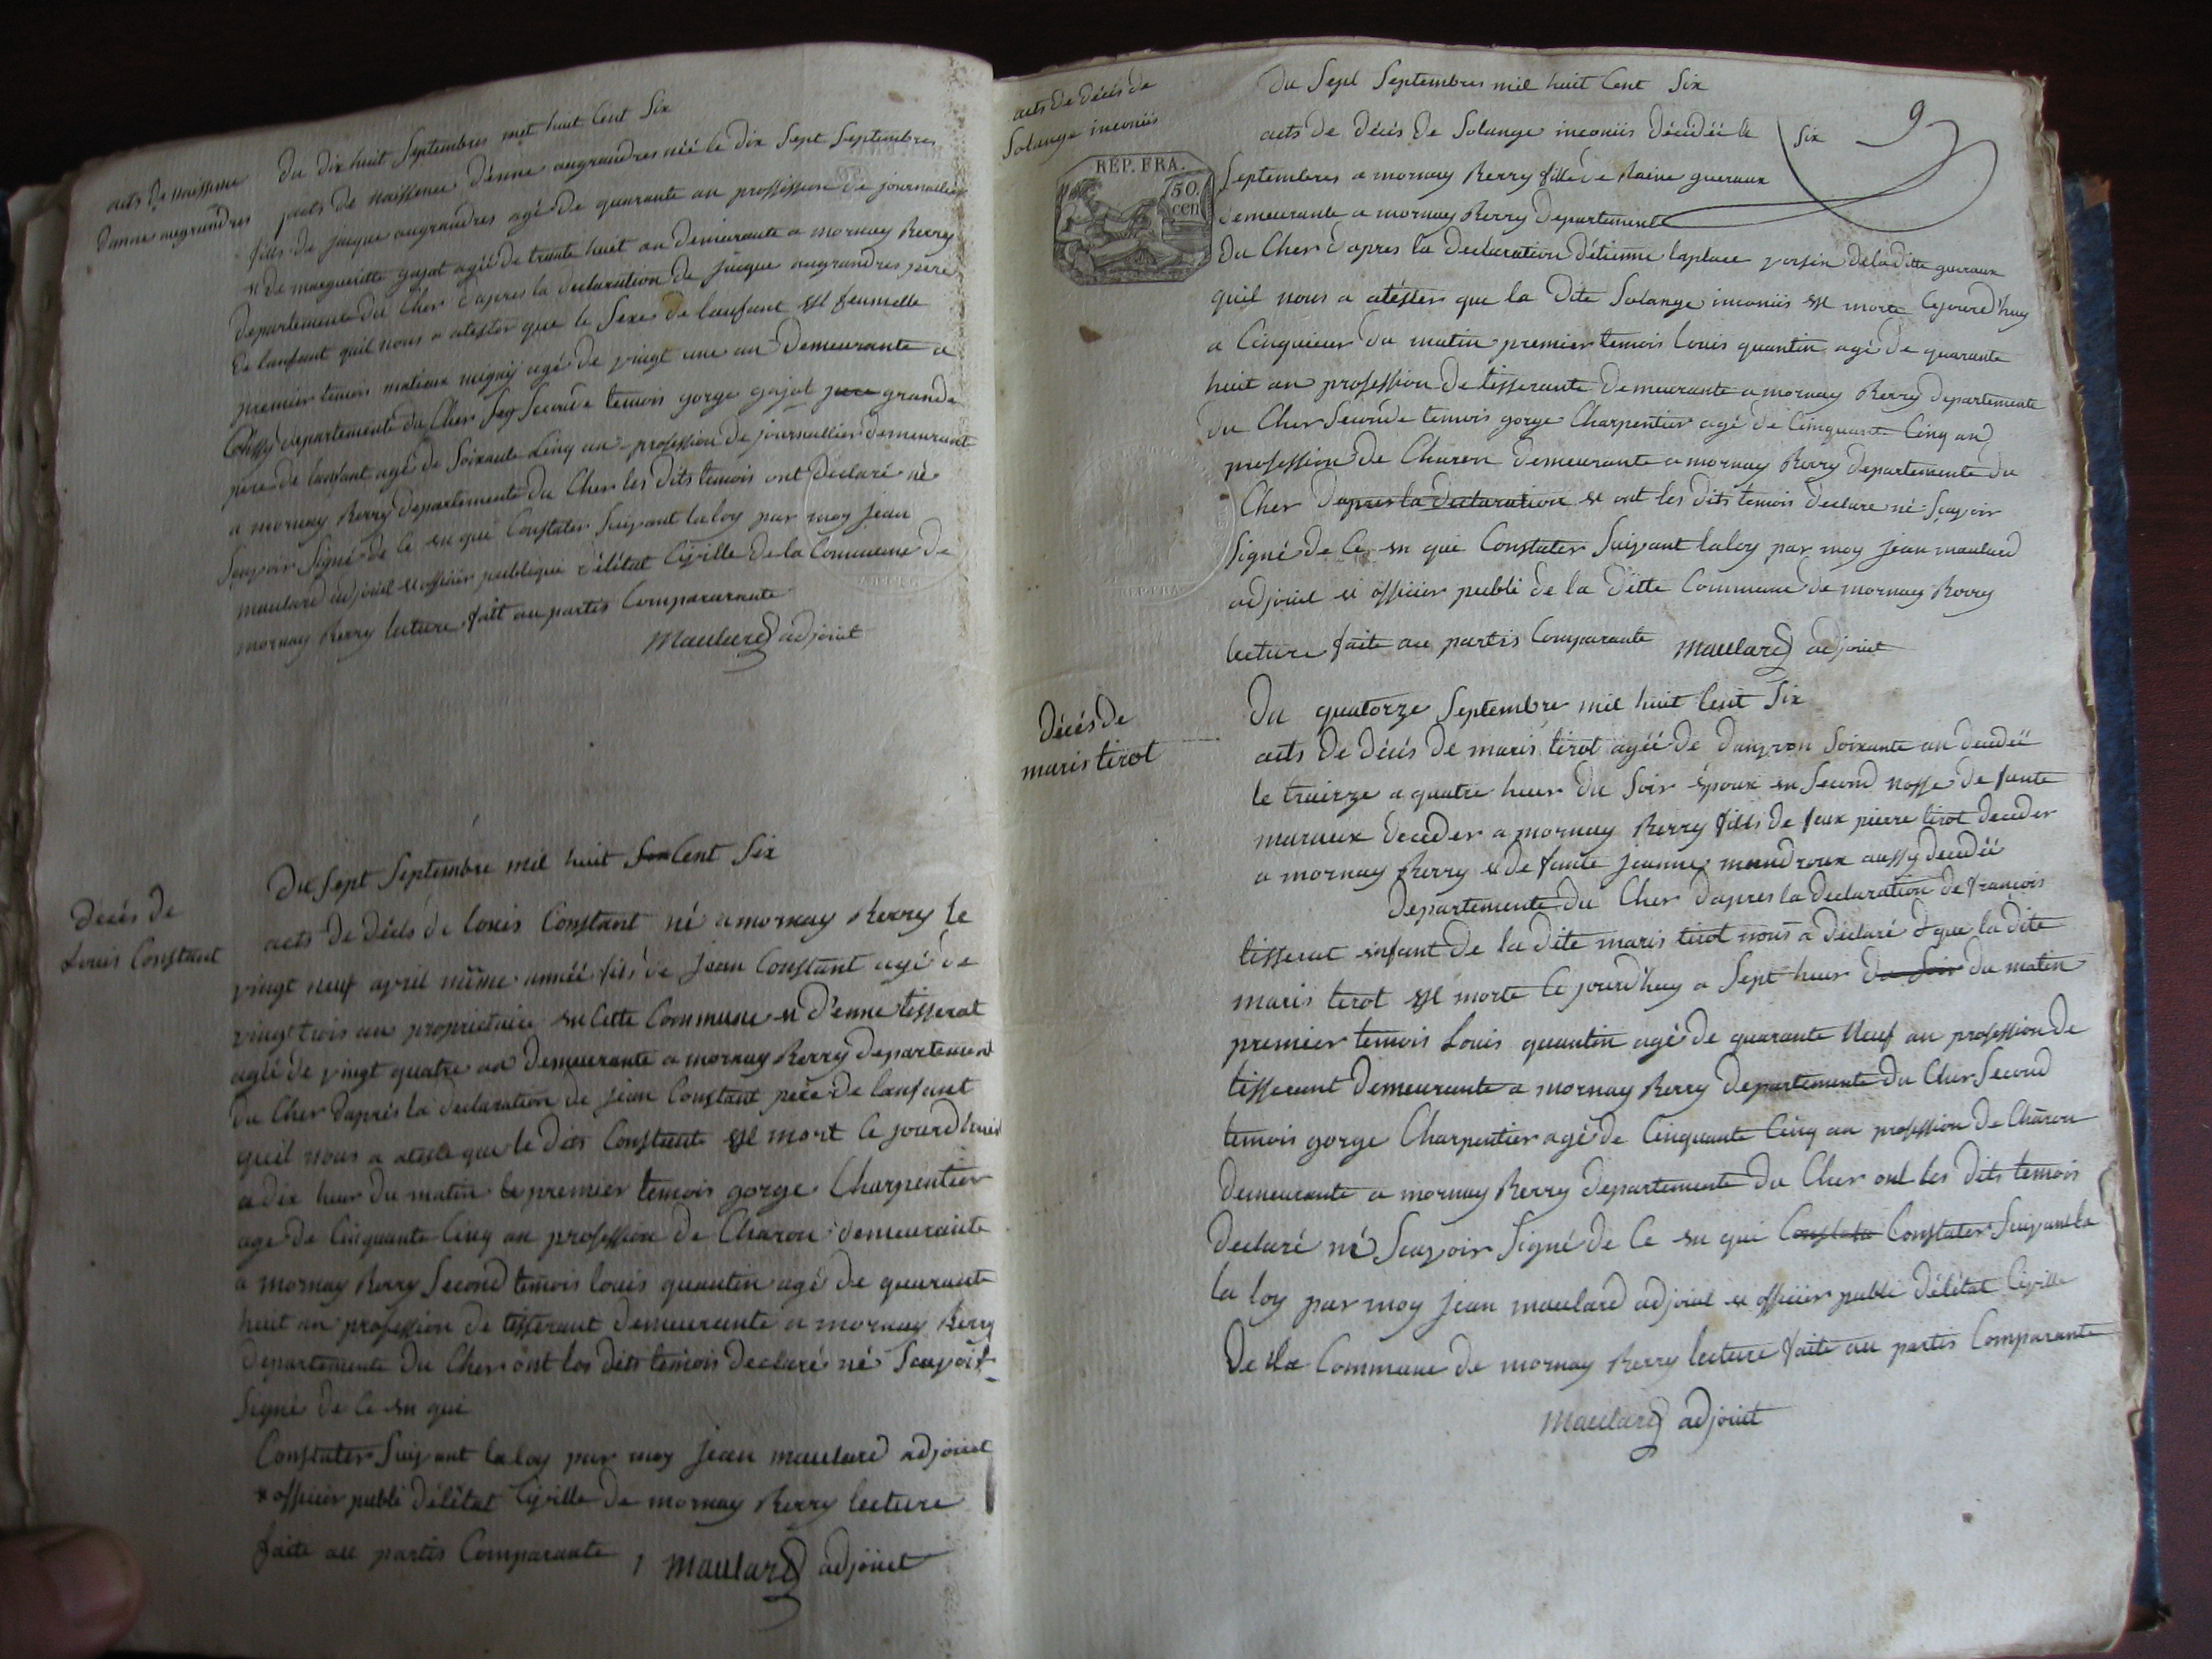 acts de naissense
danne augrandres
Du dix huit Septembres met huit Cent Six
acts de naissence d'enne augrandres néé le dix Sept Septembres
fills de jacque augrandres agé de quarante an proffission de journallier
et de margueritte gajat agéé de trante huit an demeurante a mornay Berry
departemente du Cher d'apres la declaration de jacque augrandres pere
de lanfant quil nous a atester que le Sexe de lanfant est feumelle
premier temois matieux migny agé de vingt une an demeurante a
departemente du Cher Seconde temois gorge gajat pere grande
pere de lanfant agé de Soixante Cinq an profession de journallier demeurante
a mornay Berry departemente du Cher les dits temois ont declaré né
Scavoir Signé de ce en qui Constater Suivant la loy par moy jean
maulard adjoint et officier publique d'élétat Civille de la Commune de
mornay Berry lecture fait au partis Compararante
Maulard adjoint
décés de
Louis Constant
Du Sept Septembre mil huit Cent Six
acts de décés de louis Constant né a mornay Berry le
vingt neuf avril même année fils de Jean Constant agé de
vingt trois an proprietaire en cette Commune et d'enne tisserat
agéé de vingt quatre an demeurante a mornay Berry departement
du Cher d'aprés la declaration de jean Constant père de lanfant
quil nous a atesté que le dits Constante est mort ce jourd'huit
a dix heur du matin le premier temois gorge Charpentier
age de Cinquante Cinq an profession de Charon demeurainte
a mornay Berry Second temois louis quantin agé de quarante
huit an profession de tisserant demeurante a mornay Berry
departemente du Cher ont les dits temois declaré né Scavoir
Signé de ce en qui
Constater Suivant la loy par moy jean maulard adjoint
et officier publi d'élétat Civille de mornay Berry lecture
faite au partis Comparante
Maulard adjoint
acts de décés de
Solange inconiis
RÉP. FRA.
50
cen
9
Du Sept Septembres mil huit Cent Six
acts de décés de Solange inconiis décédéé le Six
Septembres a mornay Berry fille de Raine gueraux
demeurante a mornay Berry departemente
du Cher d'apres la declaration d'étienne laplace voisin de la ditte gueraux
quil nous a atéster que la dite Solange inconiis est morte Cejourd'huy
a Cinq heur du matin premier temois louis quantin agé de quarante
huit an profession de tisserante demeurante a mornay Berry departemente
du Cher Seconde temois gorge Charpentier agé de Cinquante Cinq an
profession de Charon demeurante a mornay Berry departemente du
Cher d'apres la declaration et ont les dits temois declare né Scavoir
Signé de ce en qui Constater Suivant la loy par moy jean maulard
adjoint et officier publi de la ditte Commune de mornay Berry
lecture faite au partis Comparante Maulard adjoint
décés de
maris tirot
Du quatorze Septembre mil huit Cent Six
acts de décés de maris tirot agéé de danviron Soixante an decedéé
le traieze a quatre heur du Soir époux en Second nosse de faute
maraux deceder a mornay Berry fills de faux pierre tirot deceder
a mornay Berry et de faute jeanne mandroux aussy decedéé
departemente du Cher d'apres la declaration de francois
tisserat enfant de la dite maris tirot nous a declaré que la dite
maris tirot est morte ce jourd'huy a Sept heur du Soir du matin
premier temois Louis quantin agé de quarante Neuf an profession de
tisserant demeurante a mornay Berry departemente du Cher Second
temois gorge Charpentier agé de Cinquante Cinq an profession de Charon
demeurante a mornay Berry departemente du Cher ont les dits temois
declaré né Scavoir Signé de ce en qui Constata Constater Suivant la
la loy par moy jean maulard adjoint et officier publi d'élétat Civille
de la Commune de mornay Berry lecture faite au partis Comparante
Maulard adjoint